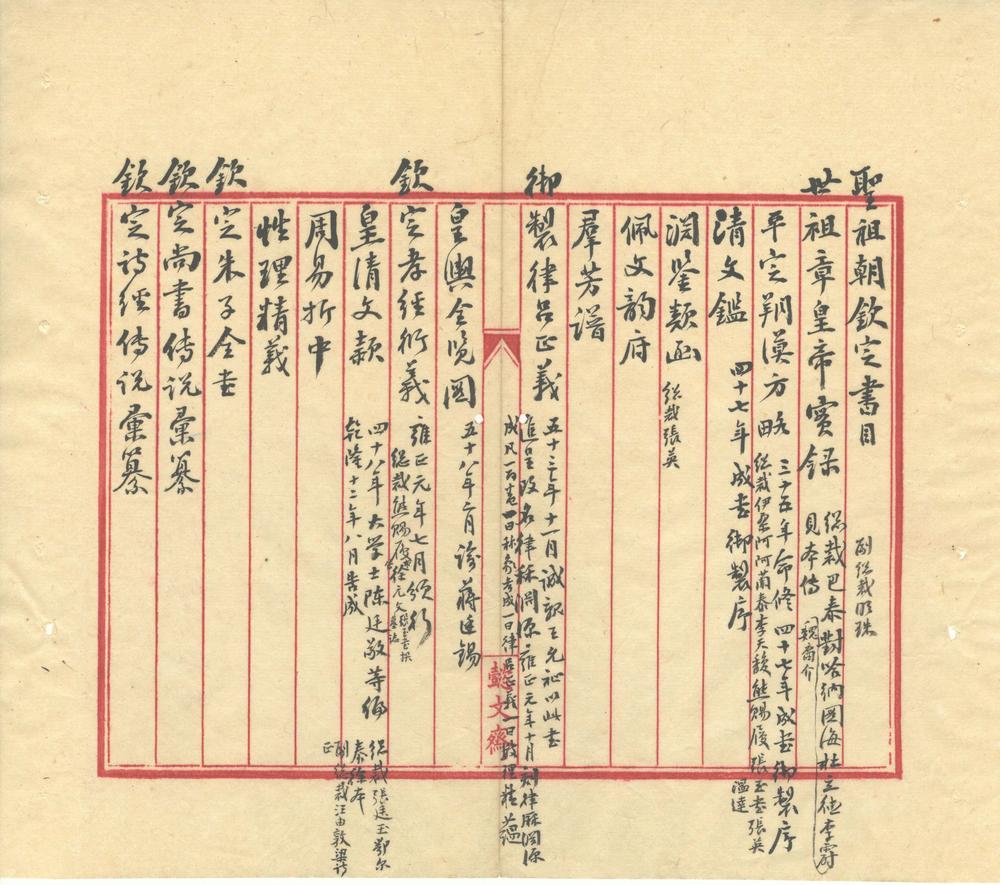 聖祖朝欽定書目
世祖章皇帝實錄
副總裁明珠
總裁巴泰對哈納圖海杜立德李霨
見本傳
魏裔介
平定朔漠方略
三十五年命修四十七年成書御製序
總裁伊桑阿阿蘭泰李天馥熊賜履張玉書張英
溫達
清文鑑
四十七年成書御製序
淵鑒類函
總裁張英
佩文韵府
羣芳譜
御製律呂正義
五十三年十一月誠親王允祉以此書
進呈改名律秝淵源雍正元年十月刻律厤淵源
成凡一百卷一曰秝象考成一曰律呂正義一曰數理精蘊
皇輿全覽圖
五十八年二月諭蔣廷錫
欽定孝經衍義
雍正元年七月頒行
總裁熊賜履徐元文
皇清文穎
四十八年大学士陳廷敬等编
乾隆十二年八月告成
總裁張廷玉鄂尔
泰徐本
副總裁汪由敦梁詩
正
周易折中
性理精義
欽定朱子全書
欽定尚書傳说彙纂
欽定詩經傳说彙纂
懿文齋